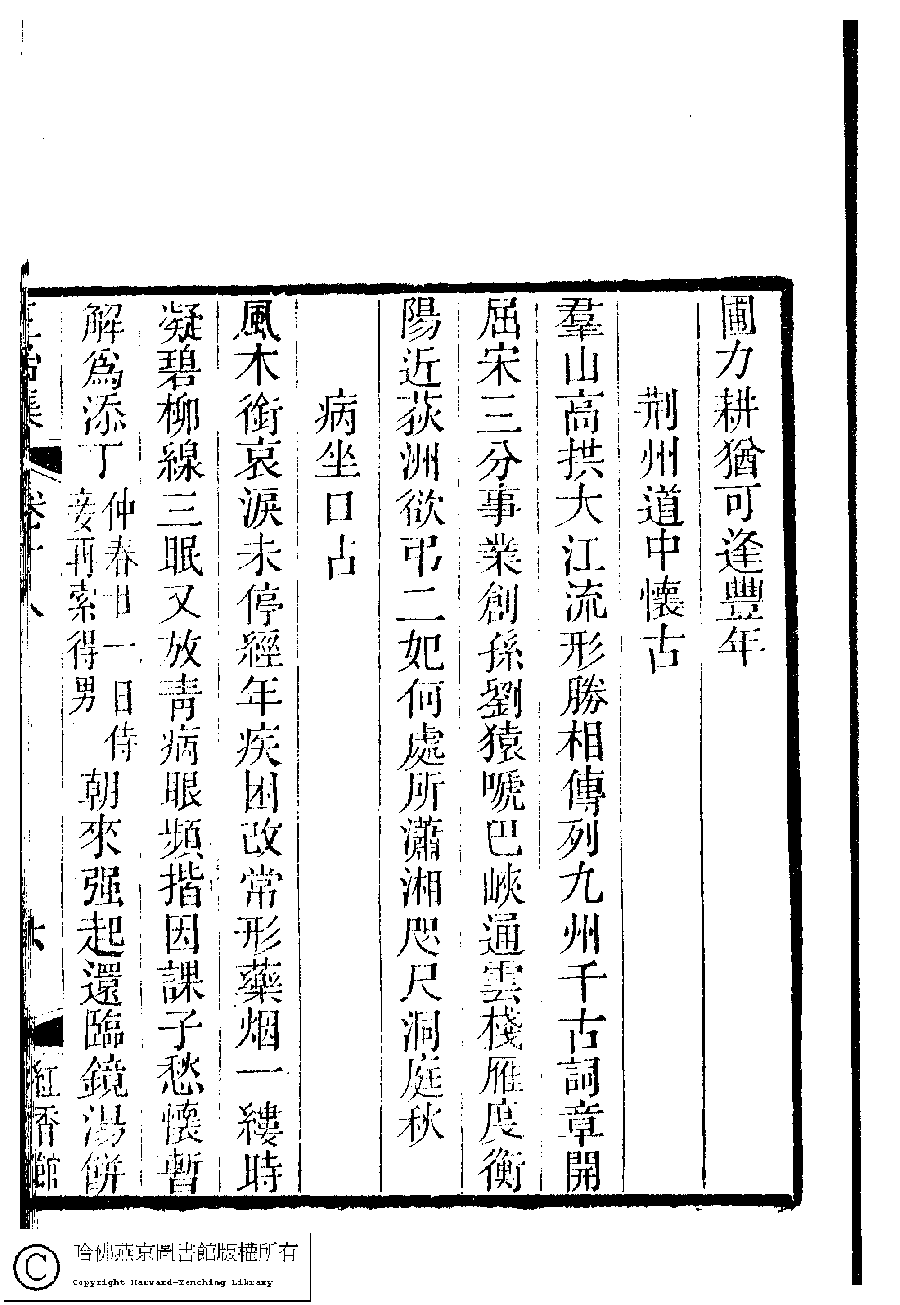 圃力耕猶可逢豐年
荆州道中懷古
羣山高拱大江流形勝相傳列九州千古詞章開
屈宋三分事業創孫劉猿嗁巴峽通雲棧雁度衡
陽近荻洲欲弔二妃何處所瀟湘咫尺洞庭秋
病坐口占
風木銜哀淚未停經年疾困改常形藥烟一縷時
凝碧柳線三眠又放靑病眼頻揩因課子愁懷暫
解爲添丁仲春廿一日侍妾再索得男朝來强起還臨鏡湯餅
集 卷十八 六 紅香館
哈佛燕京圖書館版權所有
Copyright Harvard-Yenching Library